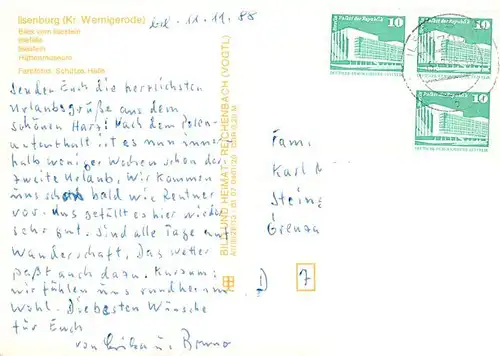 Ilsenburg (Kr. Wernigerode)
Blick vom Ilsestein
Ilsefälle
Ilsestein
Hüttenmuseum
Farbfotos: Schütze, Halle
d. 11.11.88
Senden Euch die herzlichsten
Urlaubsgrüße aus dem
schönen Harz! Nach dem Polen-
aufenthalt ist es nun inner-
halb weniger Wochen schon der
zweite Urlaub. Wir kommen
uns schon bald wie Rentner
vor. Uns gefällt es hier wieder
sehr gut. Sind alle Tage auf
Wanderschaft. Das Wetter
paßt auch dazu. Kurzum:
wir fühlen uns rundherum
wohl. Die besten Wünsche
für Euch
von Erika u. Bruno
BILD UND HEIMAT REICHENBACH (VOGTL)
Palast der Republik
10
Palast der Republik
10
Palast der Republik
10
Fam.
Karl
Steine
Grenza
7